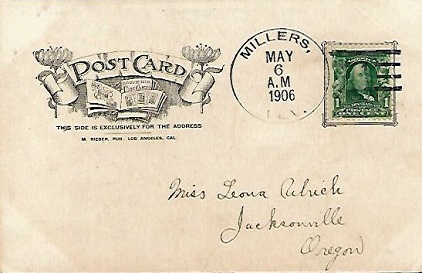 POST CARD
THIS SIDE IS EXCLUSIVELY FOR THE ADDRESS
M. RIEDER, PUB., LOS ANGELES, CAL.
MILLERS,
MAY
6
A.M
1906
1
Miss Leona Ulrich
Jacksonville
Oregon